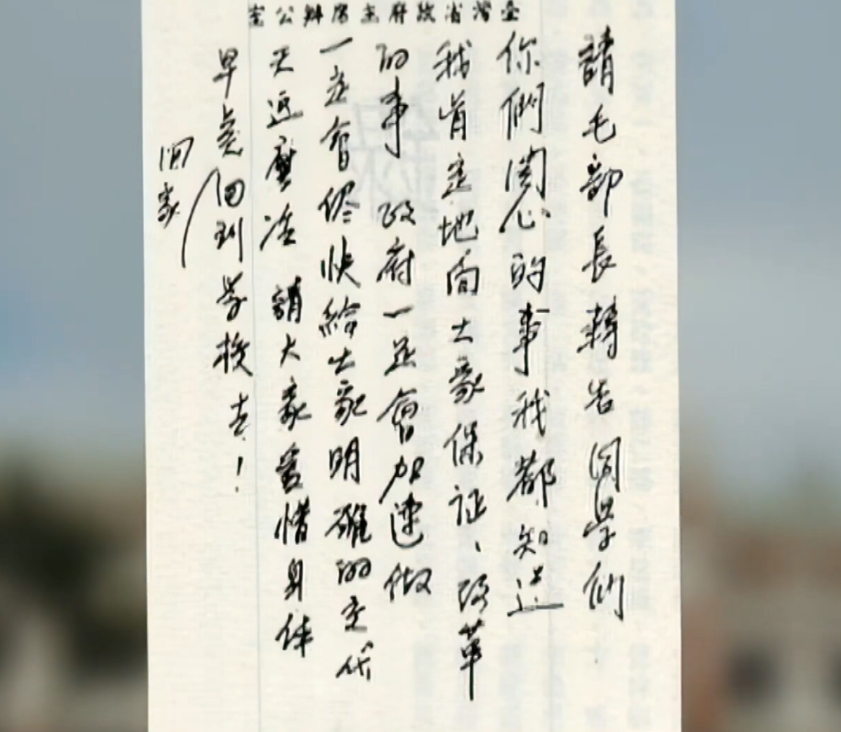 臺灣省政府主席辦公室
請毛部長轉告同學们
你們關心的事我都知道
我肯定地向大家保证、改革
的事 政府一定會加速做
一定會侭快給大家明確的交代
天這麼冷 請大家愛惜身体
早點回到學校去！
回家